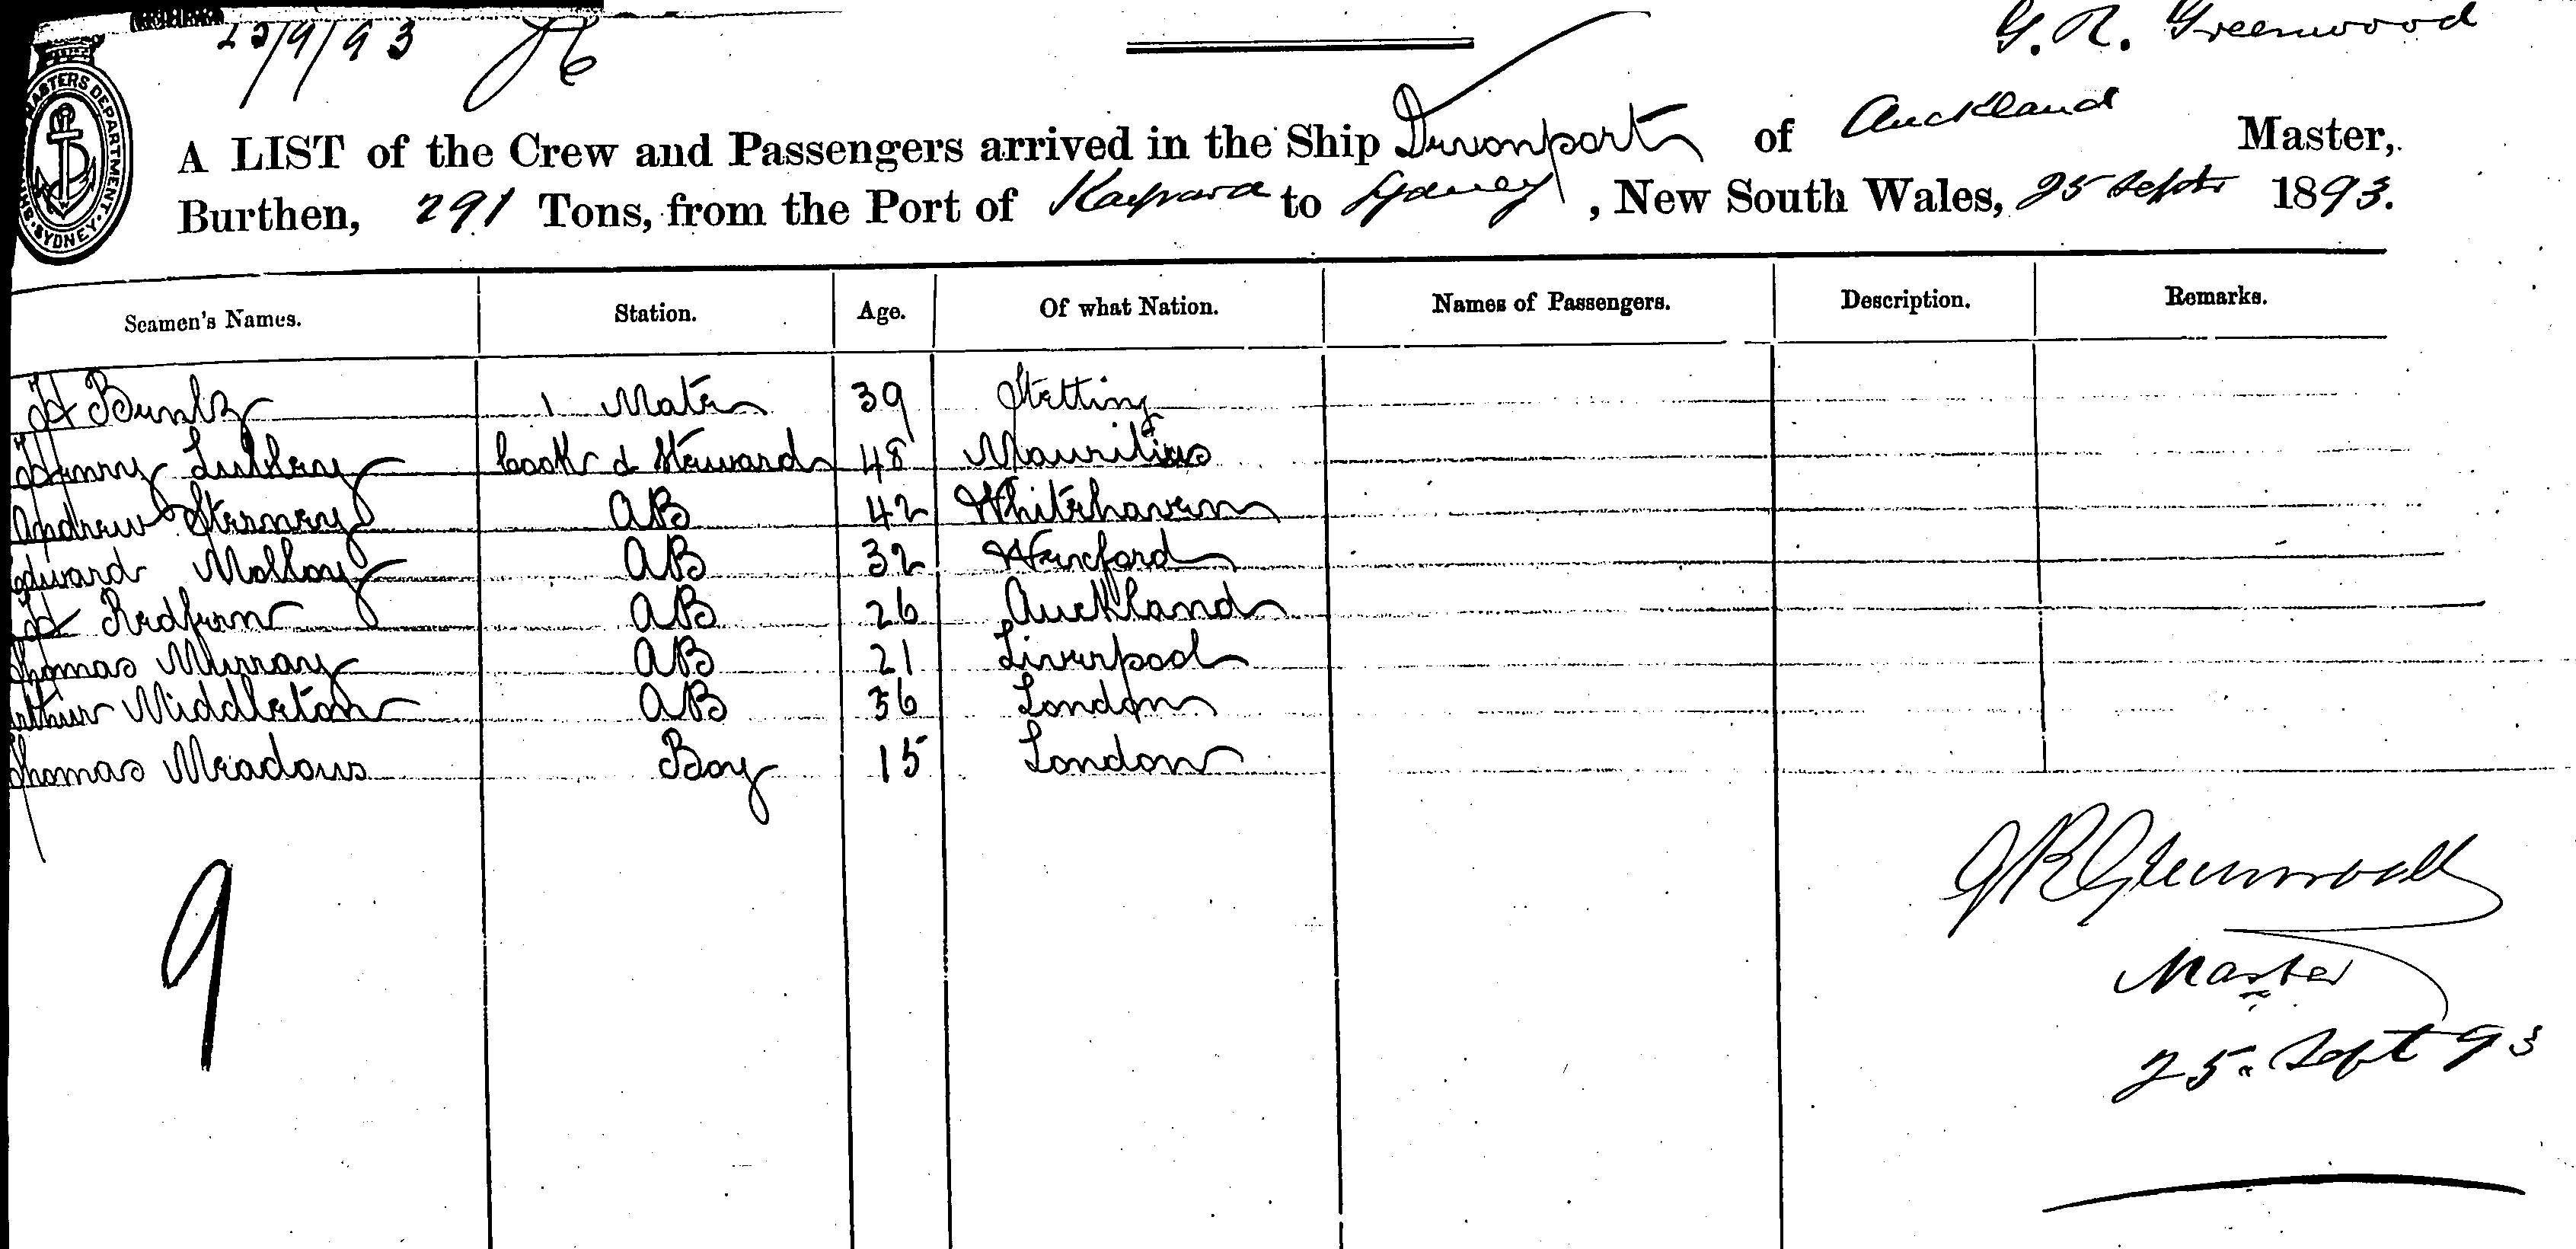 25/9/93
G. R. Greenwood
A LIST of the Crew and Passengers arrived in the Ship Devonport of Auckland Master,
Burthen, 291 Tons, from the Port of Kaipara to Sydney, New South Wales, 25 Septr 1893.
Seamen's Names. Station. Age. Of what Nation. Names of Passengers. Description. Remarks.
H 1 Mate 39 Stetting
Henry Cook & Steward 48 Mauritius
Andrew AB 42 Whitehaven
Edward Molloy AB 32 Wexford
H Redfern AB 26 Auckland
Thomas Murray AB 21 Liverpool
Arthur Middleton AB 36 London
Thomas Meadows Boy 15 London
9
G R Greenwood
Master
25. Sept 93